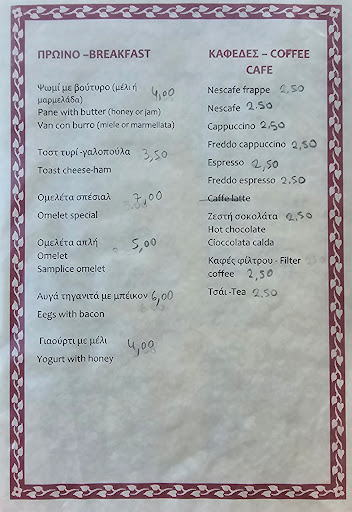 ΠΡΩΙΝΟ –BREAKFAST
Ψωμί με βούτυρο (μέλι ή 4,00
μαρμελάδα)
Pane with butter (honey or jam)
Van con burro (miele or marmellata)
Τοστ τυρί -γαλοπούλα 3,50
Toast cheese-ham
Ομελέτα σπέσιαλ 7,00
Omelet special
Ομελέτα απλή 5,00
Omelet
Samplice omelet
Αυγά τηγανιτά με μπέικον 6,00
Eegs with bacon
Γιαούρτι με μέλι 4,00
Yogurt with honey
ΚΑΦΕΔΕΣ – COFFEE
CAFE
Nescafe frappe 2,50
Nescafe 2.50
Cappuccino 2,50
Freddo cappuccino 2,50
Espresso 2,50
Freddo espresso 2.50
Caffe latte
Ζεστή σοκολάτα 2,50
Hot chocolate
Cioccolata calda
Καφές φίλτρου - Filter
coffee 2,50
Τσάι -Tea 2.50